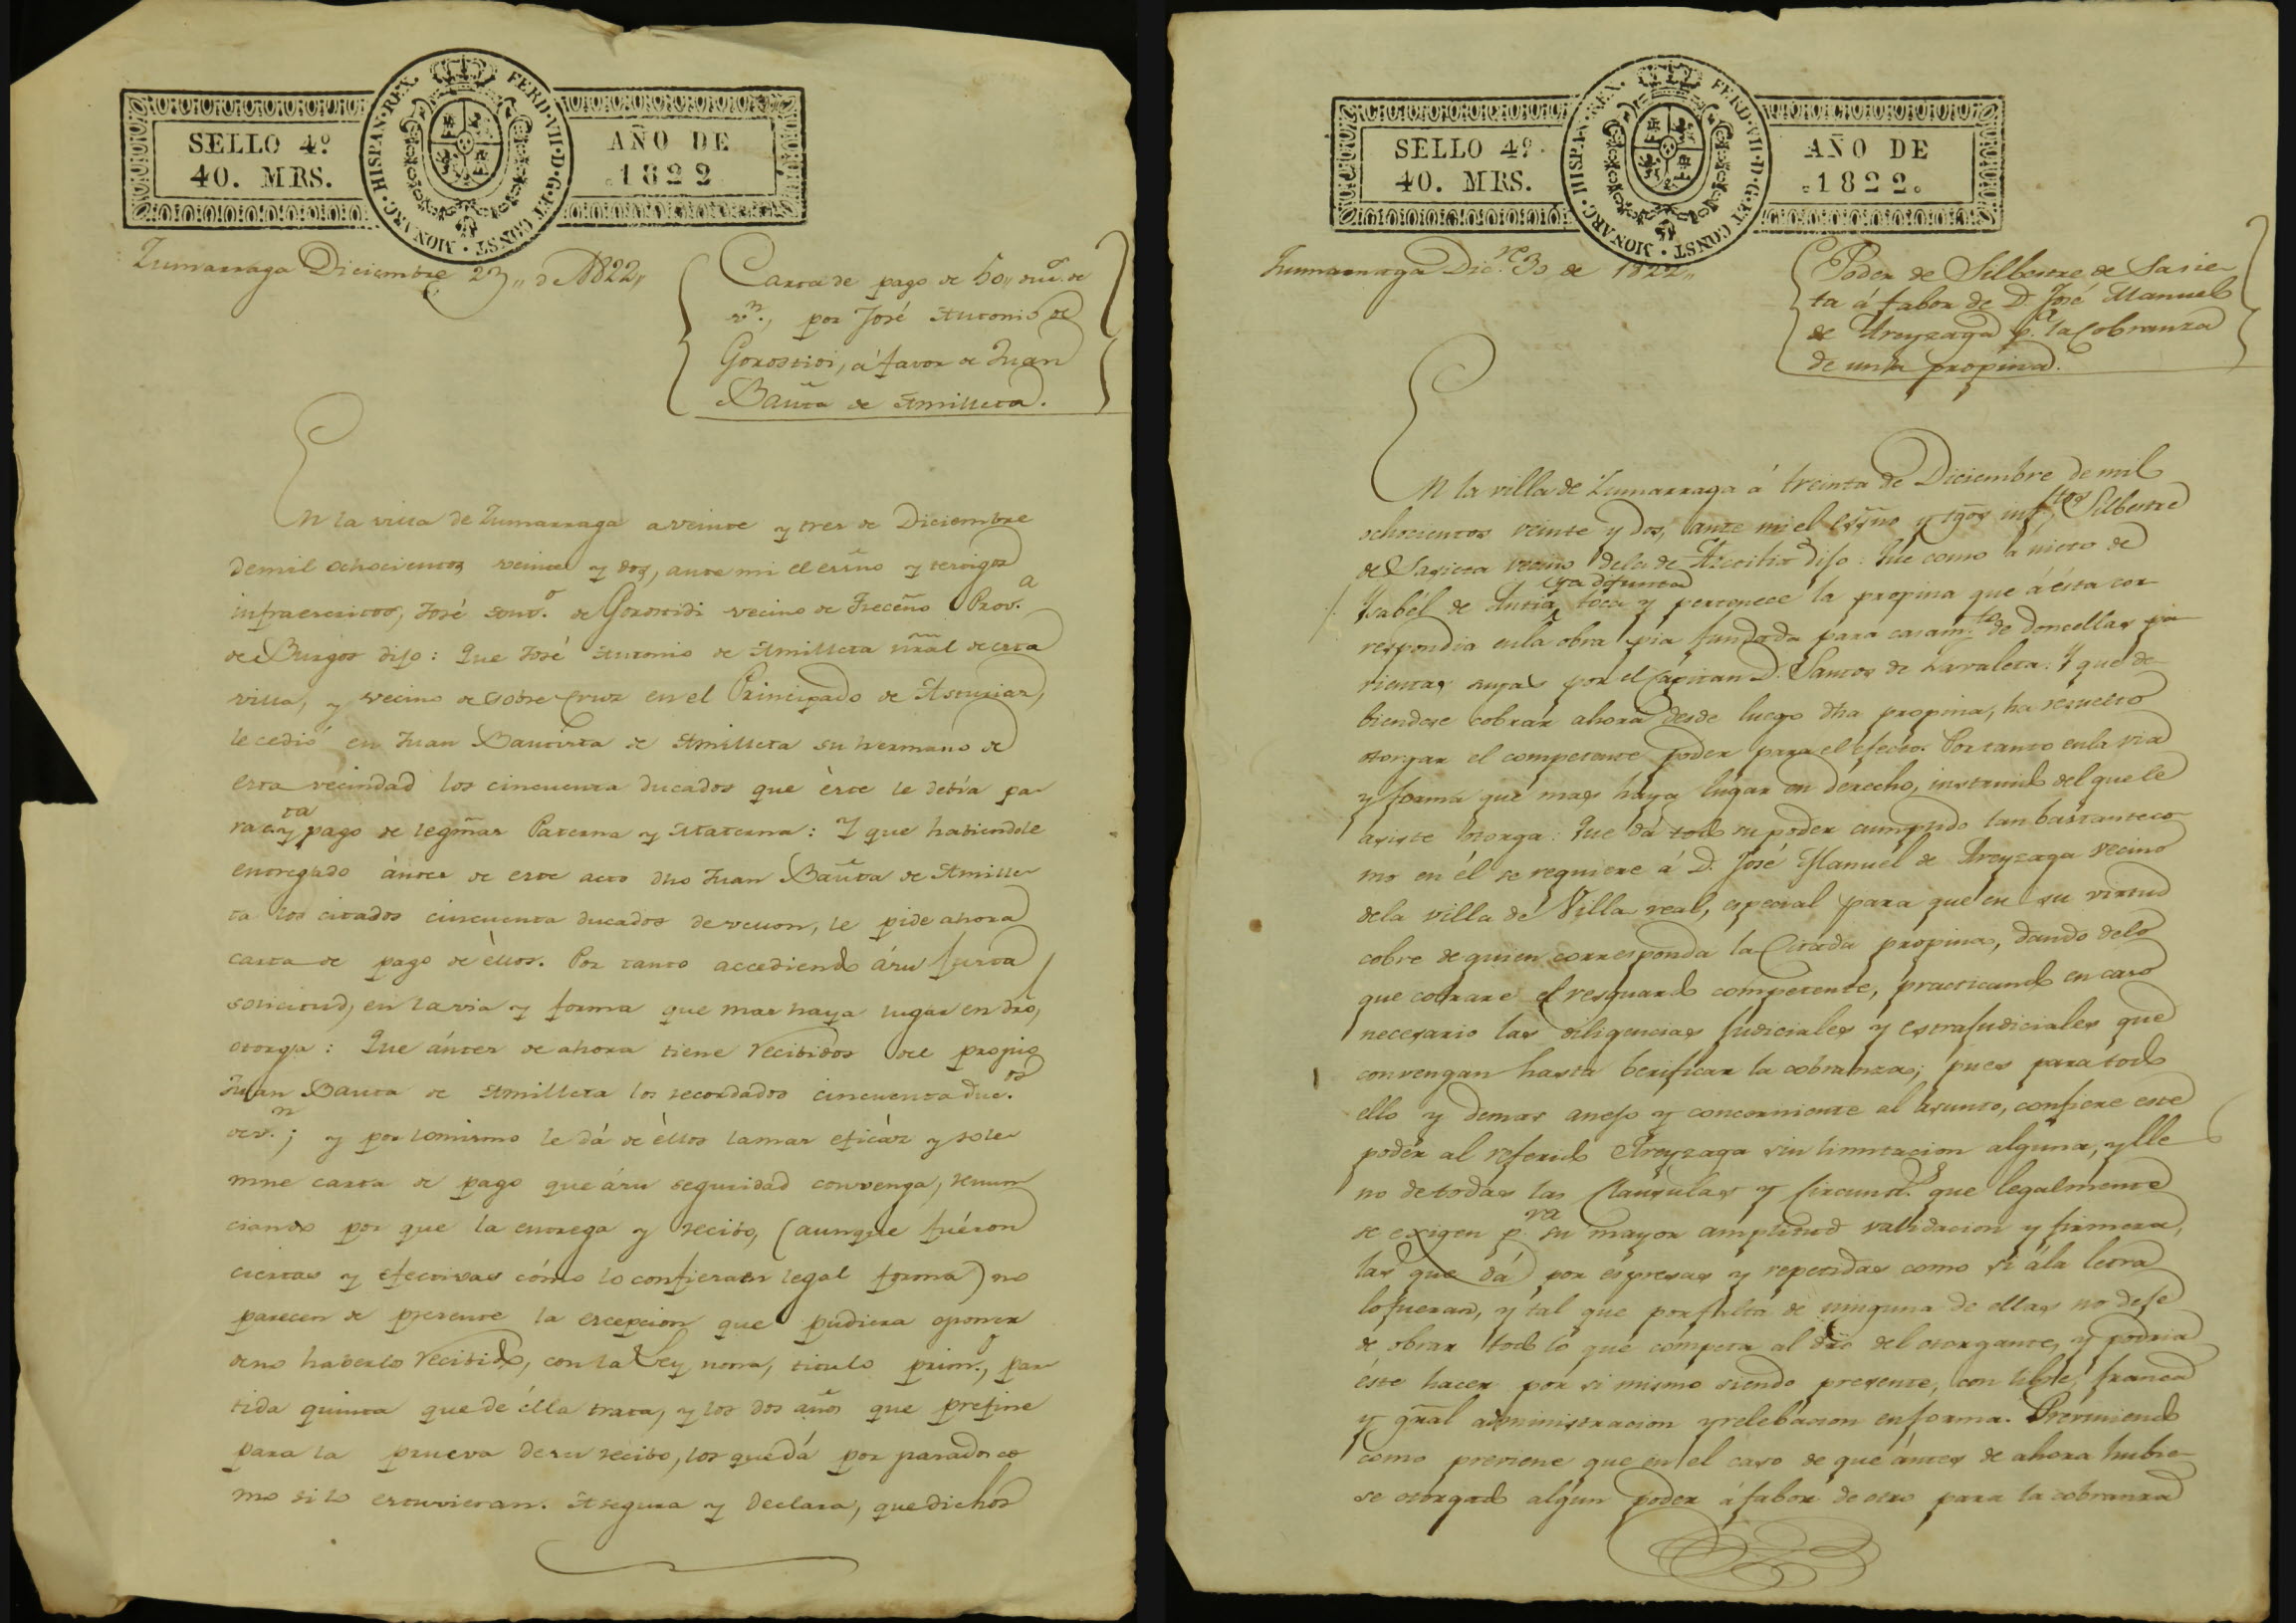 SELLO 4º
40. MRS.
HISPAN·REX. FERD·VII·D·G·ET CONST·MONARC·
AÑO DE
1822
Zumarraga Diciembre 23,, de 1822,,
Carta de pago de 50,, duc.º de
v.n, por José Antonio de
Gorostidi, á favor de Juan
Bauta de Amilleta.
En la villa de Zumarraga a veinte y tres de Diciembre
de mil ochocientos veinte y dos, ante mi el esnño y testigos
infraescritos, José de Gorostidi vecino de Treceño Prov.a
de Burgos dijo: Que José Antonio de Amilleta nral de esta
villa, y vecino de Sobre Cruz en el Principado de Asturias,
le cedió en Juan Bautista de Amilleta su hermano de
esta vecindad los cincuenta ducados que éste le debía pa
ra cta y pago de legmas Paterna y Materna: Y que habiendole
entregado ántes de este acto dho Juan Bauta de Amille
ta los citados cincuenta ducados de vellon, le pide ahora
carta de pago de èllos. Por tanto accediendo ásu justa
solicitud, en la via y forma que mas haya lugar en dro,
otorga: Que ántes de ahora tiene recibidos del propio
Juan Bauta de Amilleta los recordados cincuenta duc.os
de v.n; y por lo mismo le dá de èllos la mas eficáz y sole
mne carta de pago que ásu seguridad convenga, renun
ciando por que la entrega y recibo, (aunque fuéron
ciertas y efectivas cómo lo confiesa en legal forma) no
parecen de presente la escepcion que pudiera oponer
de no haberlo recibido, con la Ley nona, titulo prim.o, par
tida quinta que de élla trata, y los dos años que prefine
para la prueva de su recibo, los que dá por pasados co
mo si lo estuvieran. Asegura y declara, que dichos
SELLO 4º
40. MRS.
HISPAN·REX. FERD·VII·D·G·ET CONST·MONARC·
AÑO DE
1822.
Zumarraga Dic.re 30 de 1822,,
Poder de Silbestre de Sasie
ta á fabor de D. José Manuel
de Areyzaga p.a la Cobranza
de una propina.
En la villa de Zumarraga á treinta de Diciembre de mil
ochocientos veinte y dos, ante mi el esñno y tgos inf.tos Silbestre
de Sasieta vecino de la de Azcoitia dijo: Que como a nieto de
ya difunta
Ysabel de Antia, toca y pertenece la propina que á ésta cor
respondia en la obra pia fundada para casam.to de doncellas pa
rientas suyas por el Capitan D. Santos de Zavaleta: Y que de
biendose cobrar ahora desde luego dha propina, ha resuelto
otorgar el competente poder para el efecto. Por tanto en la via
y forma que mas haya lugar en derecho, instruido del que le
asiste otorga: Que dá todo su poder cumplido tan bastante co
mo en él se requiere á D. José Manuel de Areyzaga vecino
de la villa de Villa real, especial para que en su virtud
cobre de quien corresponda la Citada propina, dando de lo
que cobrare el resguardo competente, practicando en caso
necesario las diligencias judiciales y estrajudiciales que
convengan hasta berificar la cobranza; pues para todo
ello y demas anejo y concerniente al asunto, confiere este
poder al referido Areyzaga sin limitacion alguna, y lle
no de todas las Clausulas y Circunst.s que legalmente
se exigen p.ra su mayor amplitud validacion y firmeza,
las que dá por espresas y repetidas como si á la letra
lo fueran, y tal que por falta de ninguna de ellas no deje
de obrar todo lo que competa al dro del otorgante, y podria
éste hacer por si mismo siendo presente, con libre, franca
y gral administracion y relebacion en forma. Previniendo
como previene que en el caso de que ántes de ahora hubie
se otorgado algun poder á fabor de otro para la cobranza